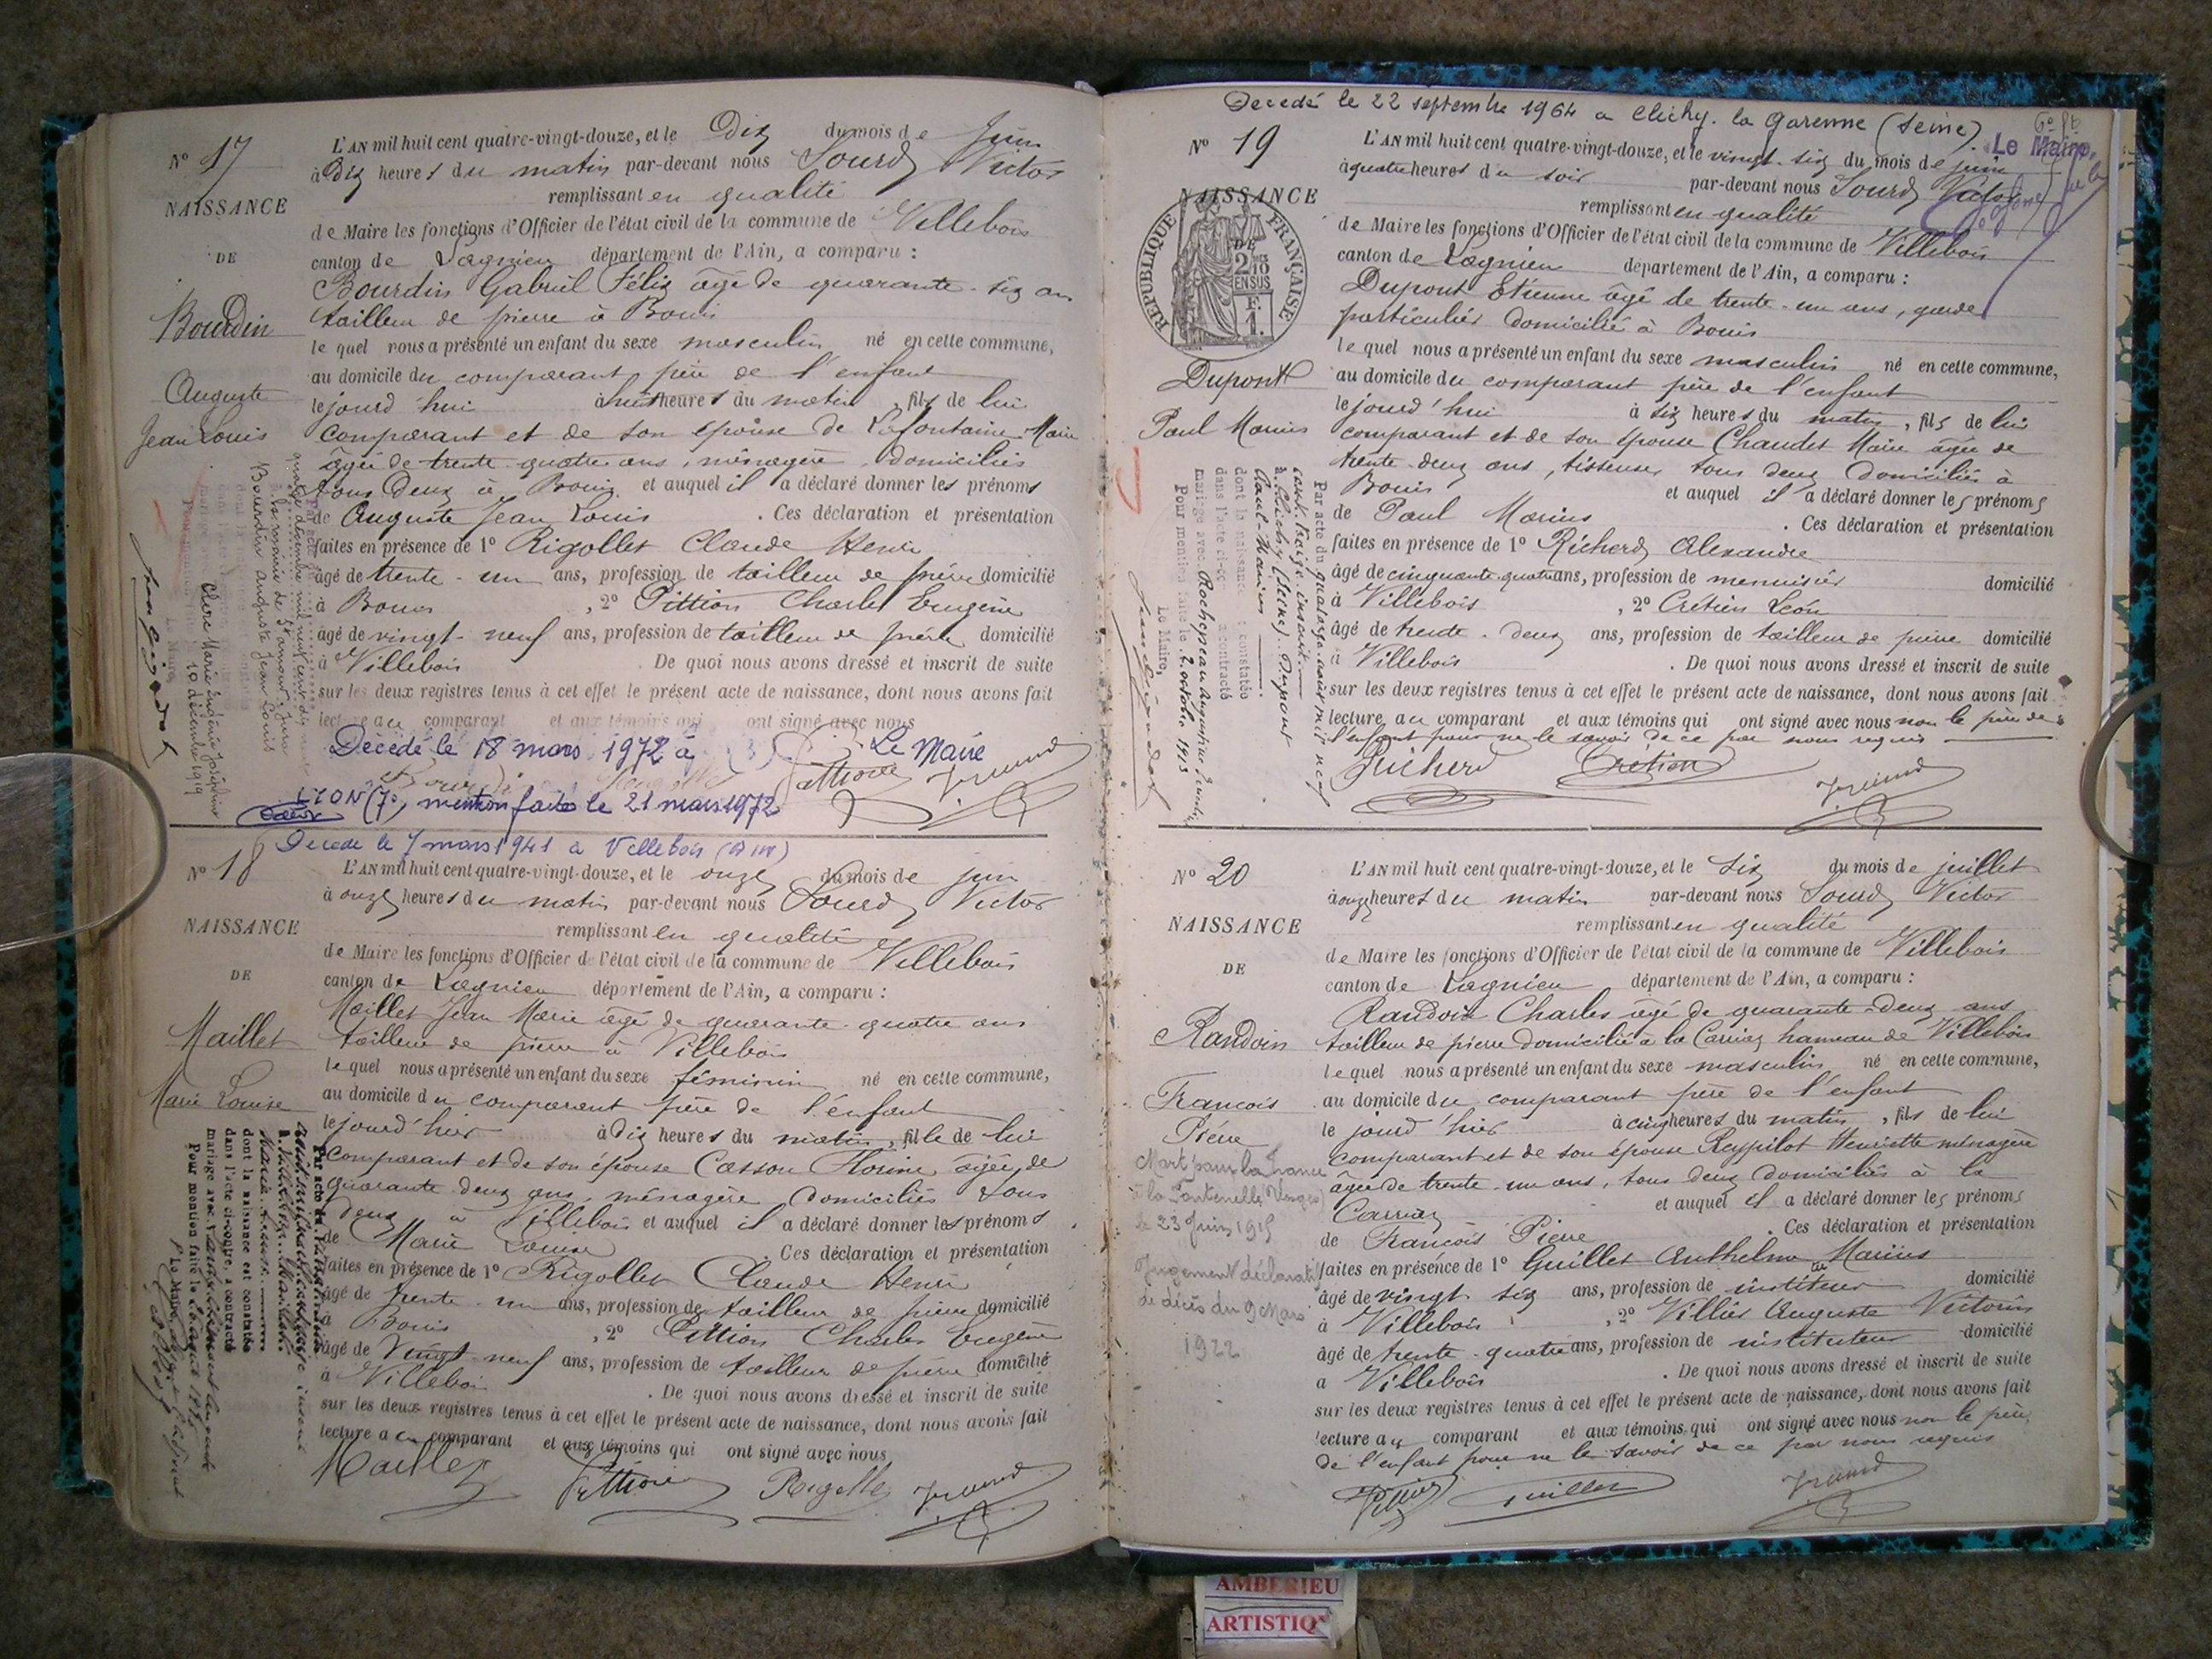 N° 17
NAISSANCE
DE
Bourdin
Auguste
Jean Louis
L'AN mil huit cent quatre-vingt-douze, et le Dix du mois de Juin
à Dix heures du matin par-devant nous Sourd Victor
remplissant en qualité
de Maire les fonctions d'Officier de l'état civil de la commune de Villebois
canton de Lagnieu département de l'Ain, a comparu :
Bourdin Gabriel Félix âgé de quarante-six ans
tailleur de pierre à Bouis
le quel nous a présenté un enfant du sexe masculin né en cette commune,
au domicile du comparant père de l'enfant
le jourd'hui à huit heures du matin, fils de lui
comparant et de son épouse de Lafontaine Marie
âgée de trente-quatre ans, ménagère, domiciliés
tous deux à Bouis et auquel il a déclaré donner les prénoms
de Auguste Jean Louis. Ces déclaration et présentation
faites en présence de 1° Rigollet Claude Henri
âgé de trente-un ans, profession de tailleur de pierre domicilié
à Bouis, 2° Pittion Charles Eugène
âgé de vingt-neuf ans, profession de tailleur de pierre domicilié
à Villebois. De quoi nous avons dressé et inscrit de suite
sur les deux registres tenus à cet effet le présent acte de naissance, dont nous avons fait
lecture au comparant et aux témoins qui ont signé avec nous
Décédé le 18 mars 1972 à Le Maire
LYON (7e) mention faite le 21 mars 1972
quinze décembre mil neuf cent dix neuf
à la mairie de St amour, Jura
Bourdin Auguste Jean Louis
Clerc Marie Eugénie Joséphine
10 décembre 1919
Décédé le 7 mars 1941 à Villebois (Ain)
N° 18
NAISSANCE
DE
Maillet
Marie Louise
L'AN mil huit cent quatre-vingt-douze, et le onze du mois de juin
à onze heures du matin par-devant nous Sourd Victor
remplissant en qualité
de Maire les fonctions d'Officier de l'état civil de la commune de Villebois
canton de Lagnieu département de l'Ain, a comparu :
Maillet Jean Marie âgé de quarante-quatre ans
tailleur de pierre à Villebois
le quel nous a présenté un enfant du sexe féminin né en cette commune,
au domicile du comparant père de l'enfant
le jourd'hier à Dix heures du matin, fille de lui
comparant et de son épouse Casson Florine âgée de
quarante-deux ans, ménagère, domiciliés tous
deux à Villebois et auquel il a déclaré donner les prénoms
de Marie Louise. Ces déclaration et présentation
faites en présence de 1° Rigollet Claude Henri
âgé de trente-un ans, profession de tailleur de pierre domicilié
à Bouis, 2° Pittion Charles Eugène
âgé de vingt-neuf ans, profession de tailleur de pierre domicilié
à Villebois. De quoi nous avons dressé et inscrit de suite
sur les deux registres tenus à cet effet le présent acte de naissance, dont nous avons fait
lecture au comparant et aux témoins qui ont signé avec nous
Maillet Pittion Rigollet
Par acte du
dont la naissance est constatée
dans l'acte ci-contre, a contracté
mariage avec
Pour mention faite le
Decedé le 22 septembre 1964 a Clichy. la Garenne (Seine).
Le Maire,
N° 19
NAISSANCE
DE
RÉPUBLIQUE FRANÇAISE
2/10 EN SUS
F.
1.
Dupont
Paul Marius
L'AN mil huit cent quatre-vingt-douze, et le vingt-six du mois de juin
à quatre heures du soir par-devant nous Sourd Victor
remplissant en qualité
de Maire les fonctions d'Officier de l'état civil de la commune de Villebois
canton de Lagnieu département de l'Ain, a comparu :
Dupont Etienne âgé de trente-un ans, garde
particulier domicilié à Bouis
le quel nous a présenté un enfant du sexe masculin né en cette commune,
au domicile du comparant père de l'enfant
le jourd'hui à six heures du matin, fils de lui
comparant et de son épouse Chaudet Marie âgée de
trente-deux ans, tisseuse, tous deux domiciliés à
Bouis et auquel il a déclaré donner les prénoms
de Paul Marius. Ces déclaration et présentation
faites en présence de 1° Richerd Alexandre
âgé de cinquante-quatre ans, profession de menuisier domicilié
à Villebois, 2° Crétien Léon
âgé de trente-deux ans, profession de tailleur de pierre domicilié
à Villebois. De quoi nous avons dressé et inscrit de suite
sur les deux registres tenus à cet effet le présent acte de naissance, dont nous avons fait
lecture au comparant et aux témoins qui ont signé avec nous non le père de
l'enfant pour ne le savoir de ce par nous requis
Richerd Crétien
Par acte du quatorze août mil neuf
cent treize, inscrit
à Clichy (Seine) Dupont
Paul-Marius
dont la naissance constatée
dans l'acte ci-contre a contracté
mariage avec Rochepeau Augustine
Pour mention faite le 2 octobre 1913
Le Maire,
N° 20
NAISSANCE
DE
Randoin
Francois
Piérre
Mort pour la France
à la Fontenelle (Vosges)
le 23 Juin 1915
Jugement déclaratif
de décès du 9 Mars
1922
L'AN mil huit cent quatre-vingt-douze, et le six du mois de juillet
à onze heures du matin par-devant nous Sourd Victor
remplissant en qualité
de Maire les fonctions d'Officier de l'état civil de la commune de Villebois
canton de Lagnieu département de l'Ain, a comparu :
Randoin Charles âgé de quarante-deux ans
tailleur de pierre domicilié à la Carriaz hameau de Villebois
lequel nous a présenté un enfant du sexe masculin né en cette commune,
au domicile du comparant père de l'enfant
le jourd'hier à cinq heures du matin, fils de lui
comparant et de son épouse Reypilot Henriette ménagère
âgée de trente-un ans, tous deux domiciliés à la
Carriaz et auquel il a déclaré donner les prénoms
de Francois Pierre. Ces déclaration et présentation
faites en présence de 1° Guillet Anthelme Marius
âgé de vingt-six ans, profession de instituteur domicilié
à Villebois, 2° Villier Auguste Victorin
âgé de trente-quatre ans, profession de instituteur domicilié
à Villebois. De quoi nous avons dressé et inscrit de suite
sur les deux registres tenus à cet effet le présent acte de naissance, dont nous avons fait
lecture au comparant et aux témoins, qui ont signé avec nous non le père
de l'enfant pour ne le savoir de ce par nous requis
Guillet
AMBERIEU
ARTISTIQ